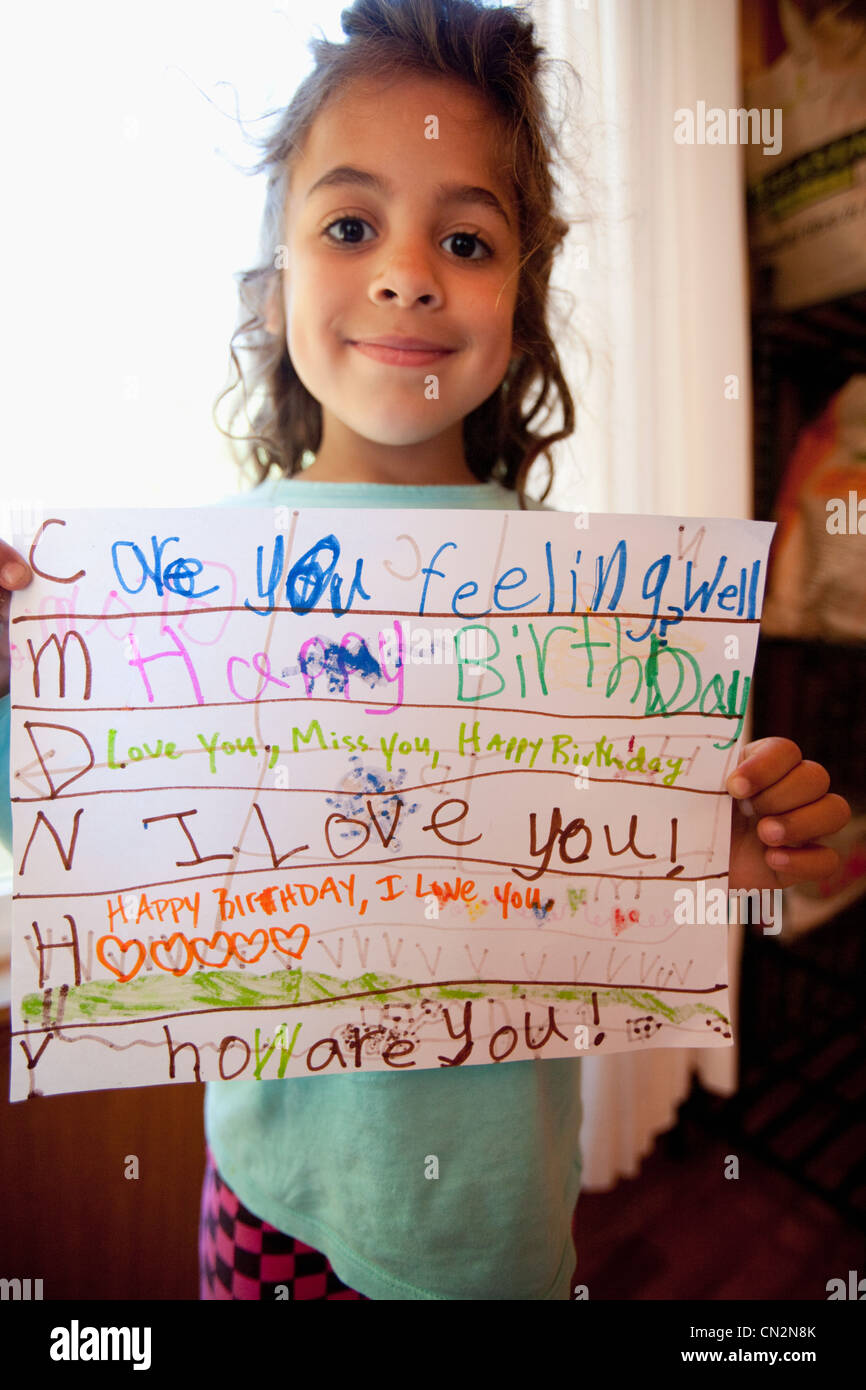 C are you feeling Well?
M Happy Birthday
D Love you, Miss you, Happy Birthday!
N I Love you!
H HAPPY BIRTHDAY, I Love you
V how are you!
alamy
Image ID: CN2N8K
www.alamy.com